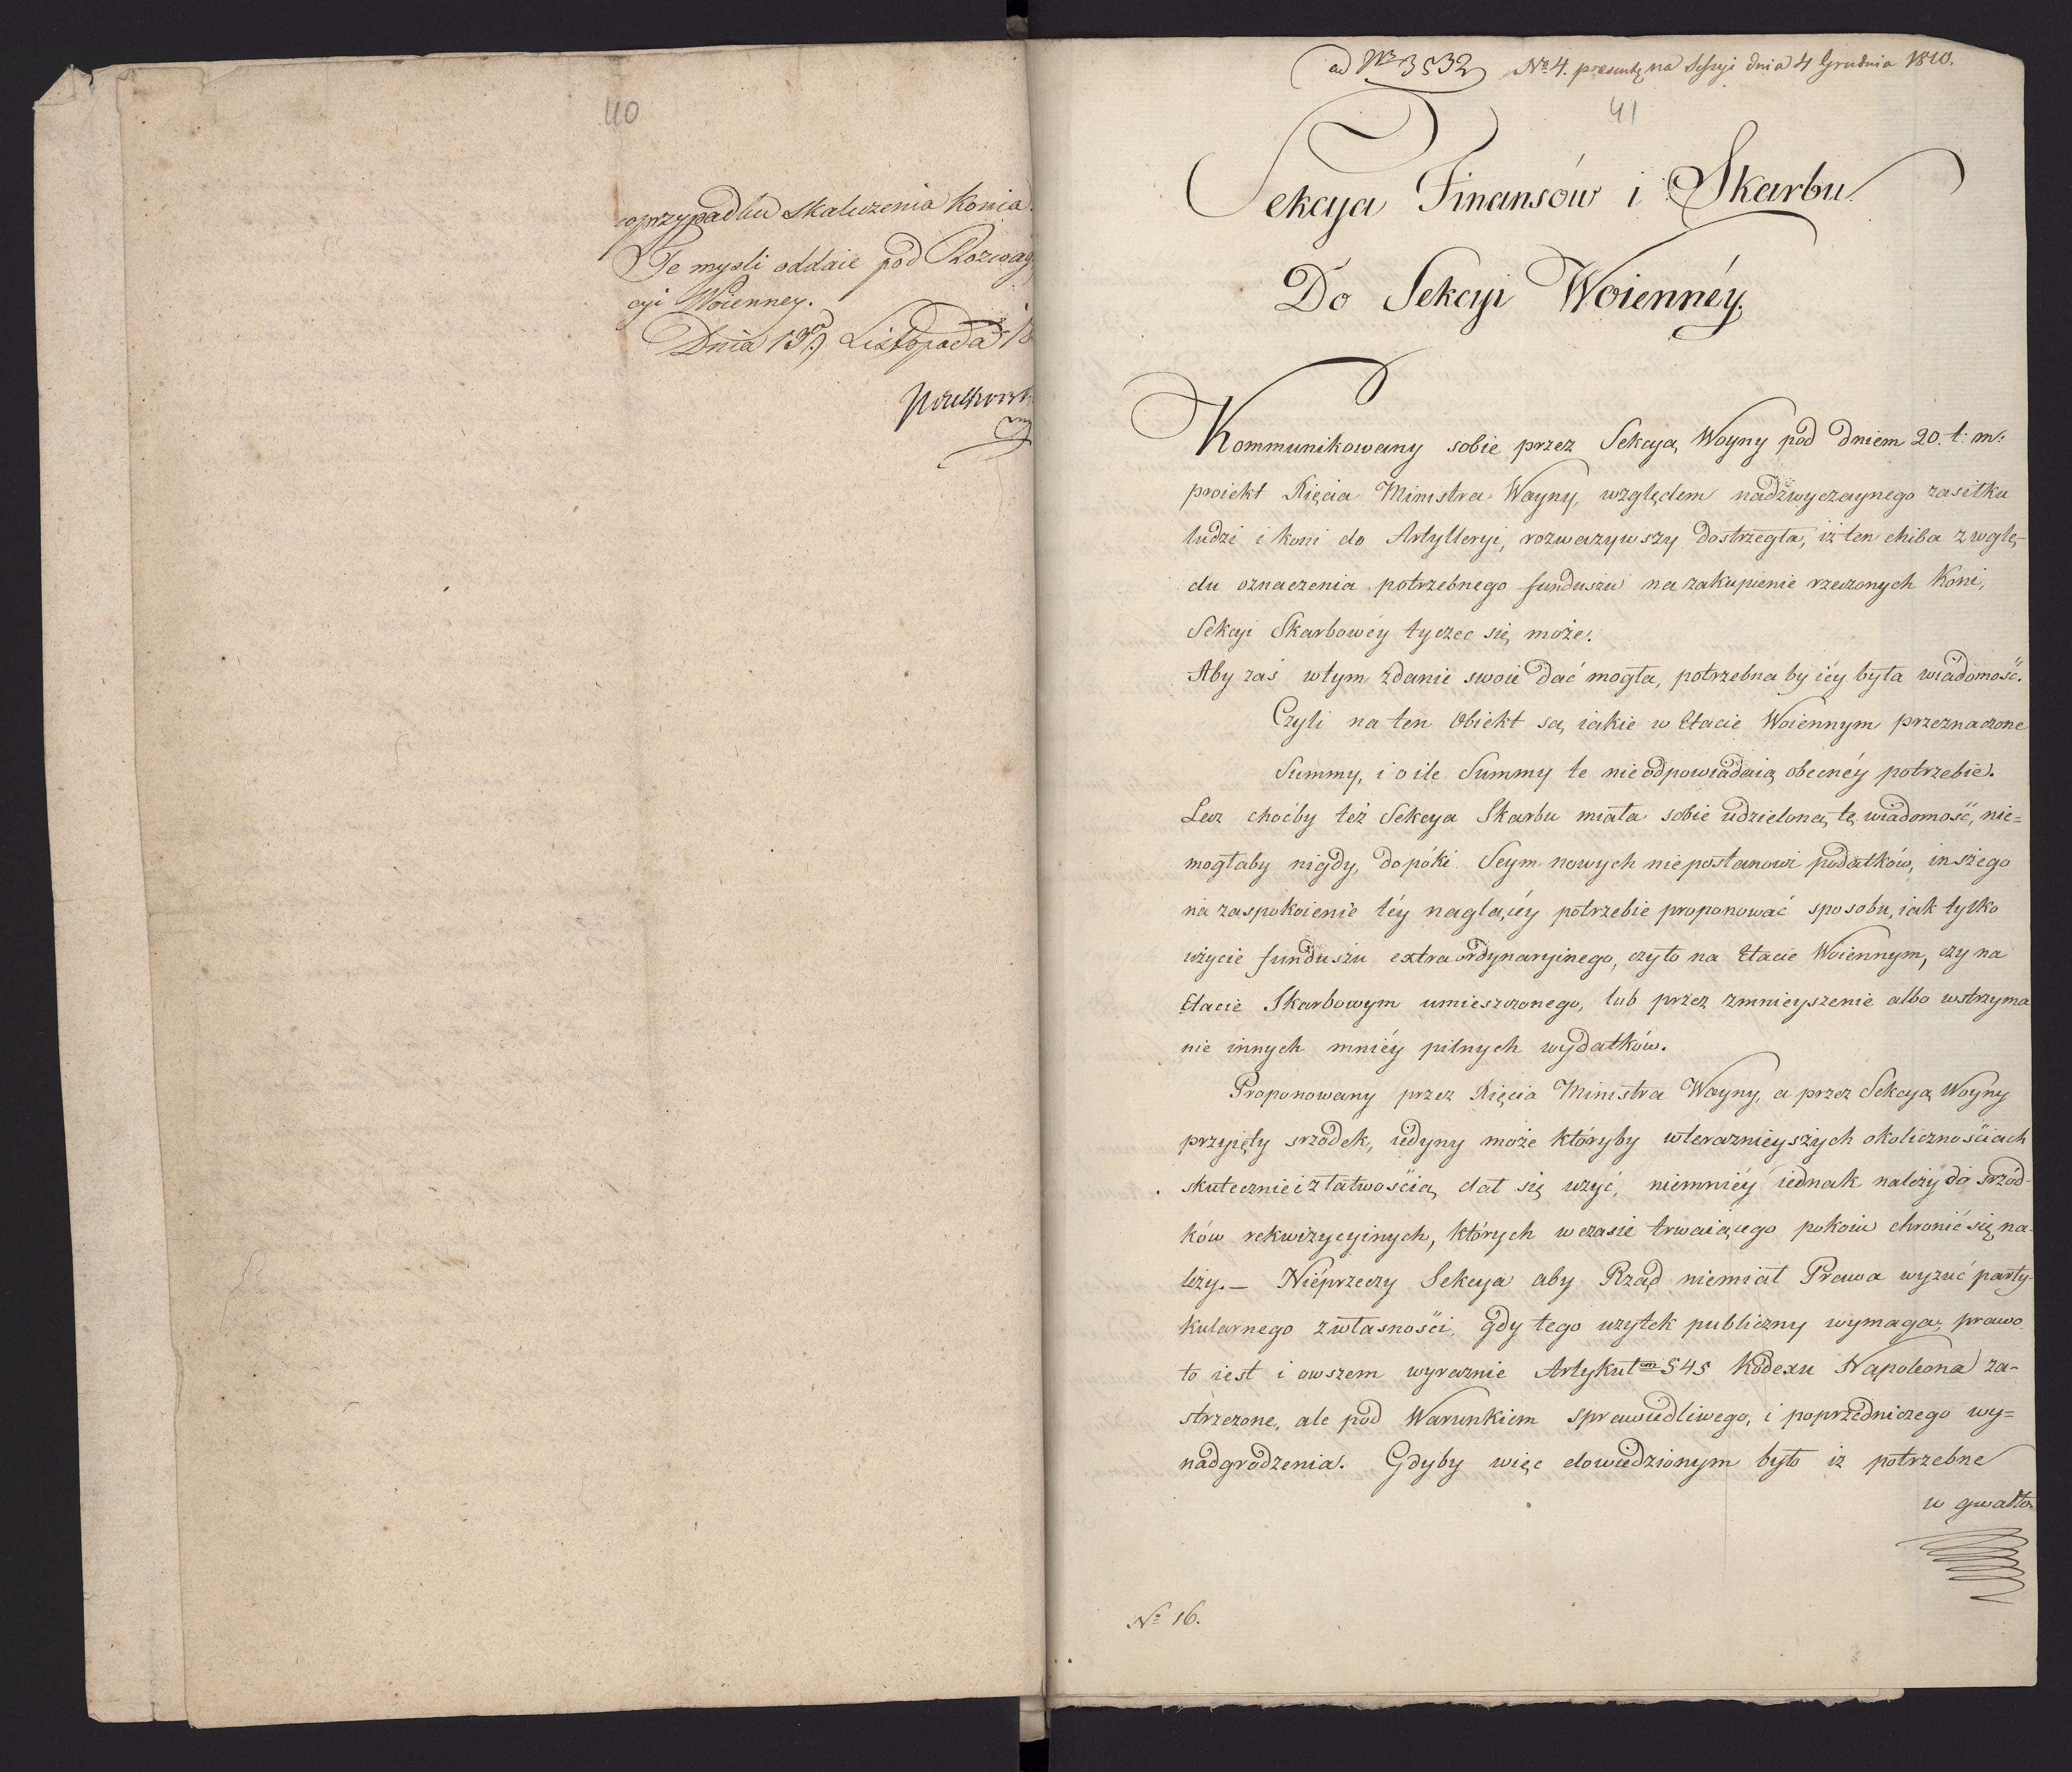 40
w przypadku skaleczenia Konia
Te mysli oddaie pod Rozwagę
cyi Woienney.
Dnia 13go Listopada 18
ad No 3532 No 4. present. na Sessyi dnia 4 Grudnia 1810.
41
Sekcya Finansów i Skarbu
Do Sekcyi Woiennéy.
Kommunikowany sobie przez Sekcyą Woyny pod dniem 20. t: m:
proiekt Xięcia Ministra Woyny, względem nadzwyczaynego zasiłku
ludzi i koni do Artylleryi, rozwazywszy dostrzegła, iż ten chiba z wglę-
du oznaczenia potrzebnego funduszu na zakupienie rzeczonych Koni,
Sekcyi Skarbowéy tyczec się może.
Aby zaś w tym zdanie swoie dać mogła, potrzebna by iéy była wiadomość.
Czyli na ten Obiekt są iakie w Etacie Woiennym przeznaczone
Summy, i o ile Summy te nie odpowiadaią obecnéy potrzebie.
Lecz choćby téż Sekcya Skarbu miała sobie udzieloną tę wiadomość, nie=
mogłaby nigdy, dopóki Seym nowych niepostanowi podatków, inszego
na zaspokoienie téy naglącéy potrzebie proponować sposobu, iak tylko
użycie funduszu extraordynaryinego, czyto na Etacie Woiennym, czy na
Etacie Skarbowym umieszczonego, lub przez zmnieyszenie albo wstrzyma
nie innych mniéy pilnych wydatków.
Proponowany przez Xięcia Ministra Woyny, a przez Sekcyą Woyny
przyięty srzodek, iedyny może któryby w terazniéyszych okolicznościach
skutecznie i z łatwością dał się użyć, niemniéy iednak należy do srzód-
ków rekwizycyinych, których w czasie trwaiącego pokoiu chronić się na-
leży.— Nieprzeczy Sekcya aby Rząd niemiał Prawa wyzuć party-
kularnego z własności, gdy tego uzytek publiczny wymaga; prawo
to iest i owszem wyraznie Artykułem 545 Kodexu Napoleona za-
strzeżone, ale pod Warunkiem sprawiedliwego, i poprzedniczego wy=
nadgrodzenia. Gdyby więc dowiedzionym było iż potrzebne
w gwałto-
No 16.